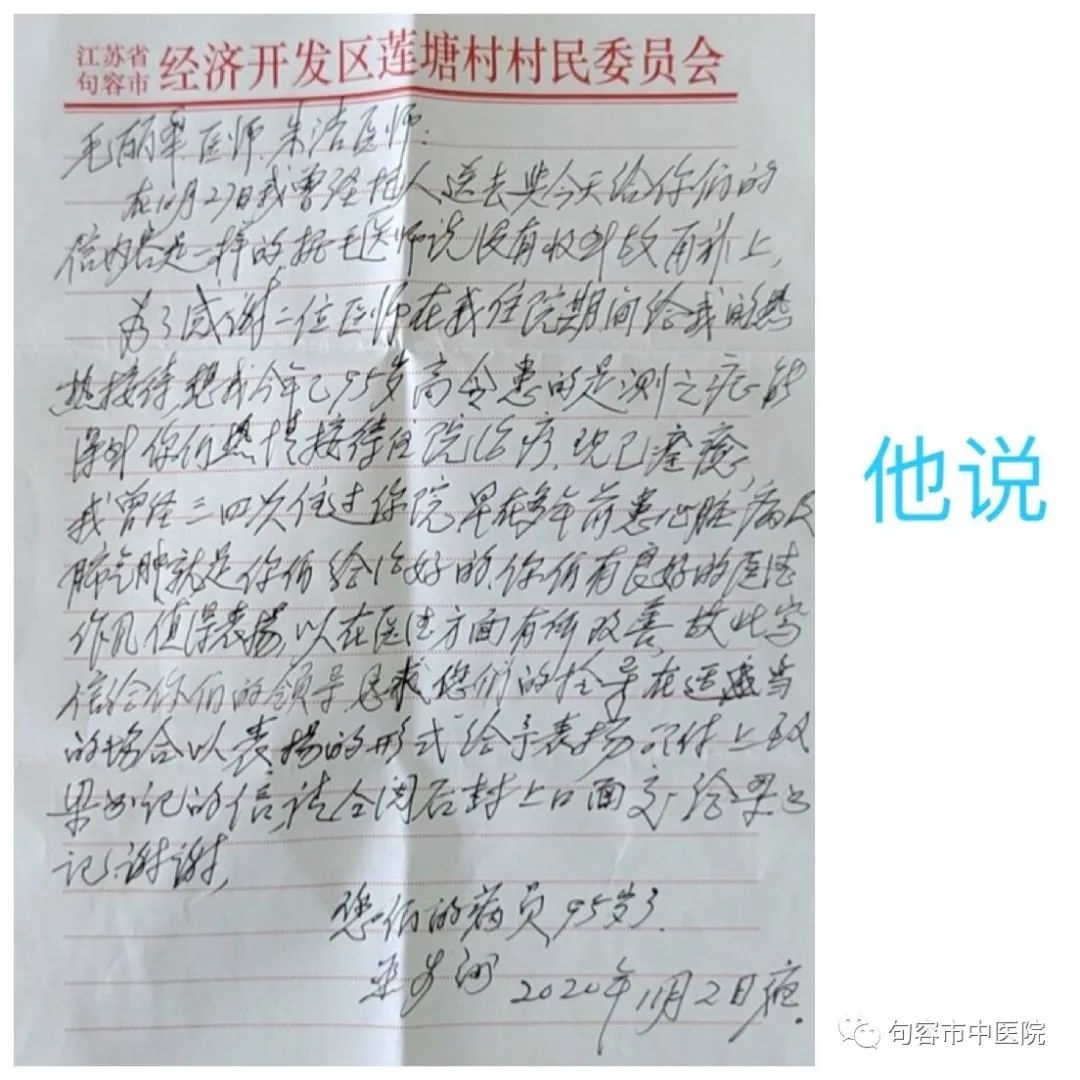 江苏省
句容市 经济开发区莲塘村村民委员会
毛丽华医师.朱洁医师.
在10月27日我曾经托人送去与今天给你们的
信内容是一样的,据毛医师说没有收到故再补上,
为了感谢二位医师在我住院期间给我的热
热接待,想我今年已95岁高令患的是测之症能
得到你们热情接待住院治疗,现已痊癒,
我曾住三四次住过你院,早在多年前患心脏病及
肺气肿就是你们给治好的,你们有良好的医德
作风值得表扬,以在医德方面有所改善,故此写
信给你们的领导,恳求您们的领导在适当
的场合以表扬的形式给予表扬,附上致
梁书记的信,请合阅后封上口面交给梁书
记,谢谢,
您们的病员95岁了.
2020年11月2日
他说
句容市中医院